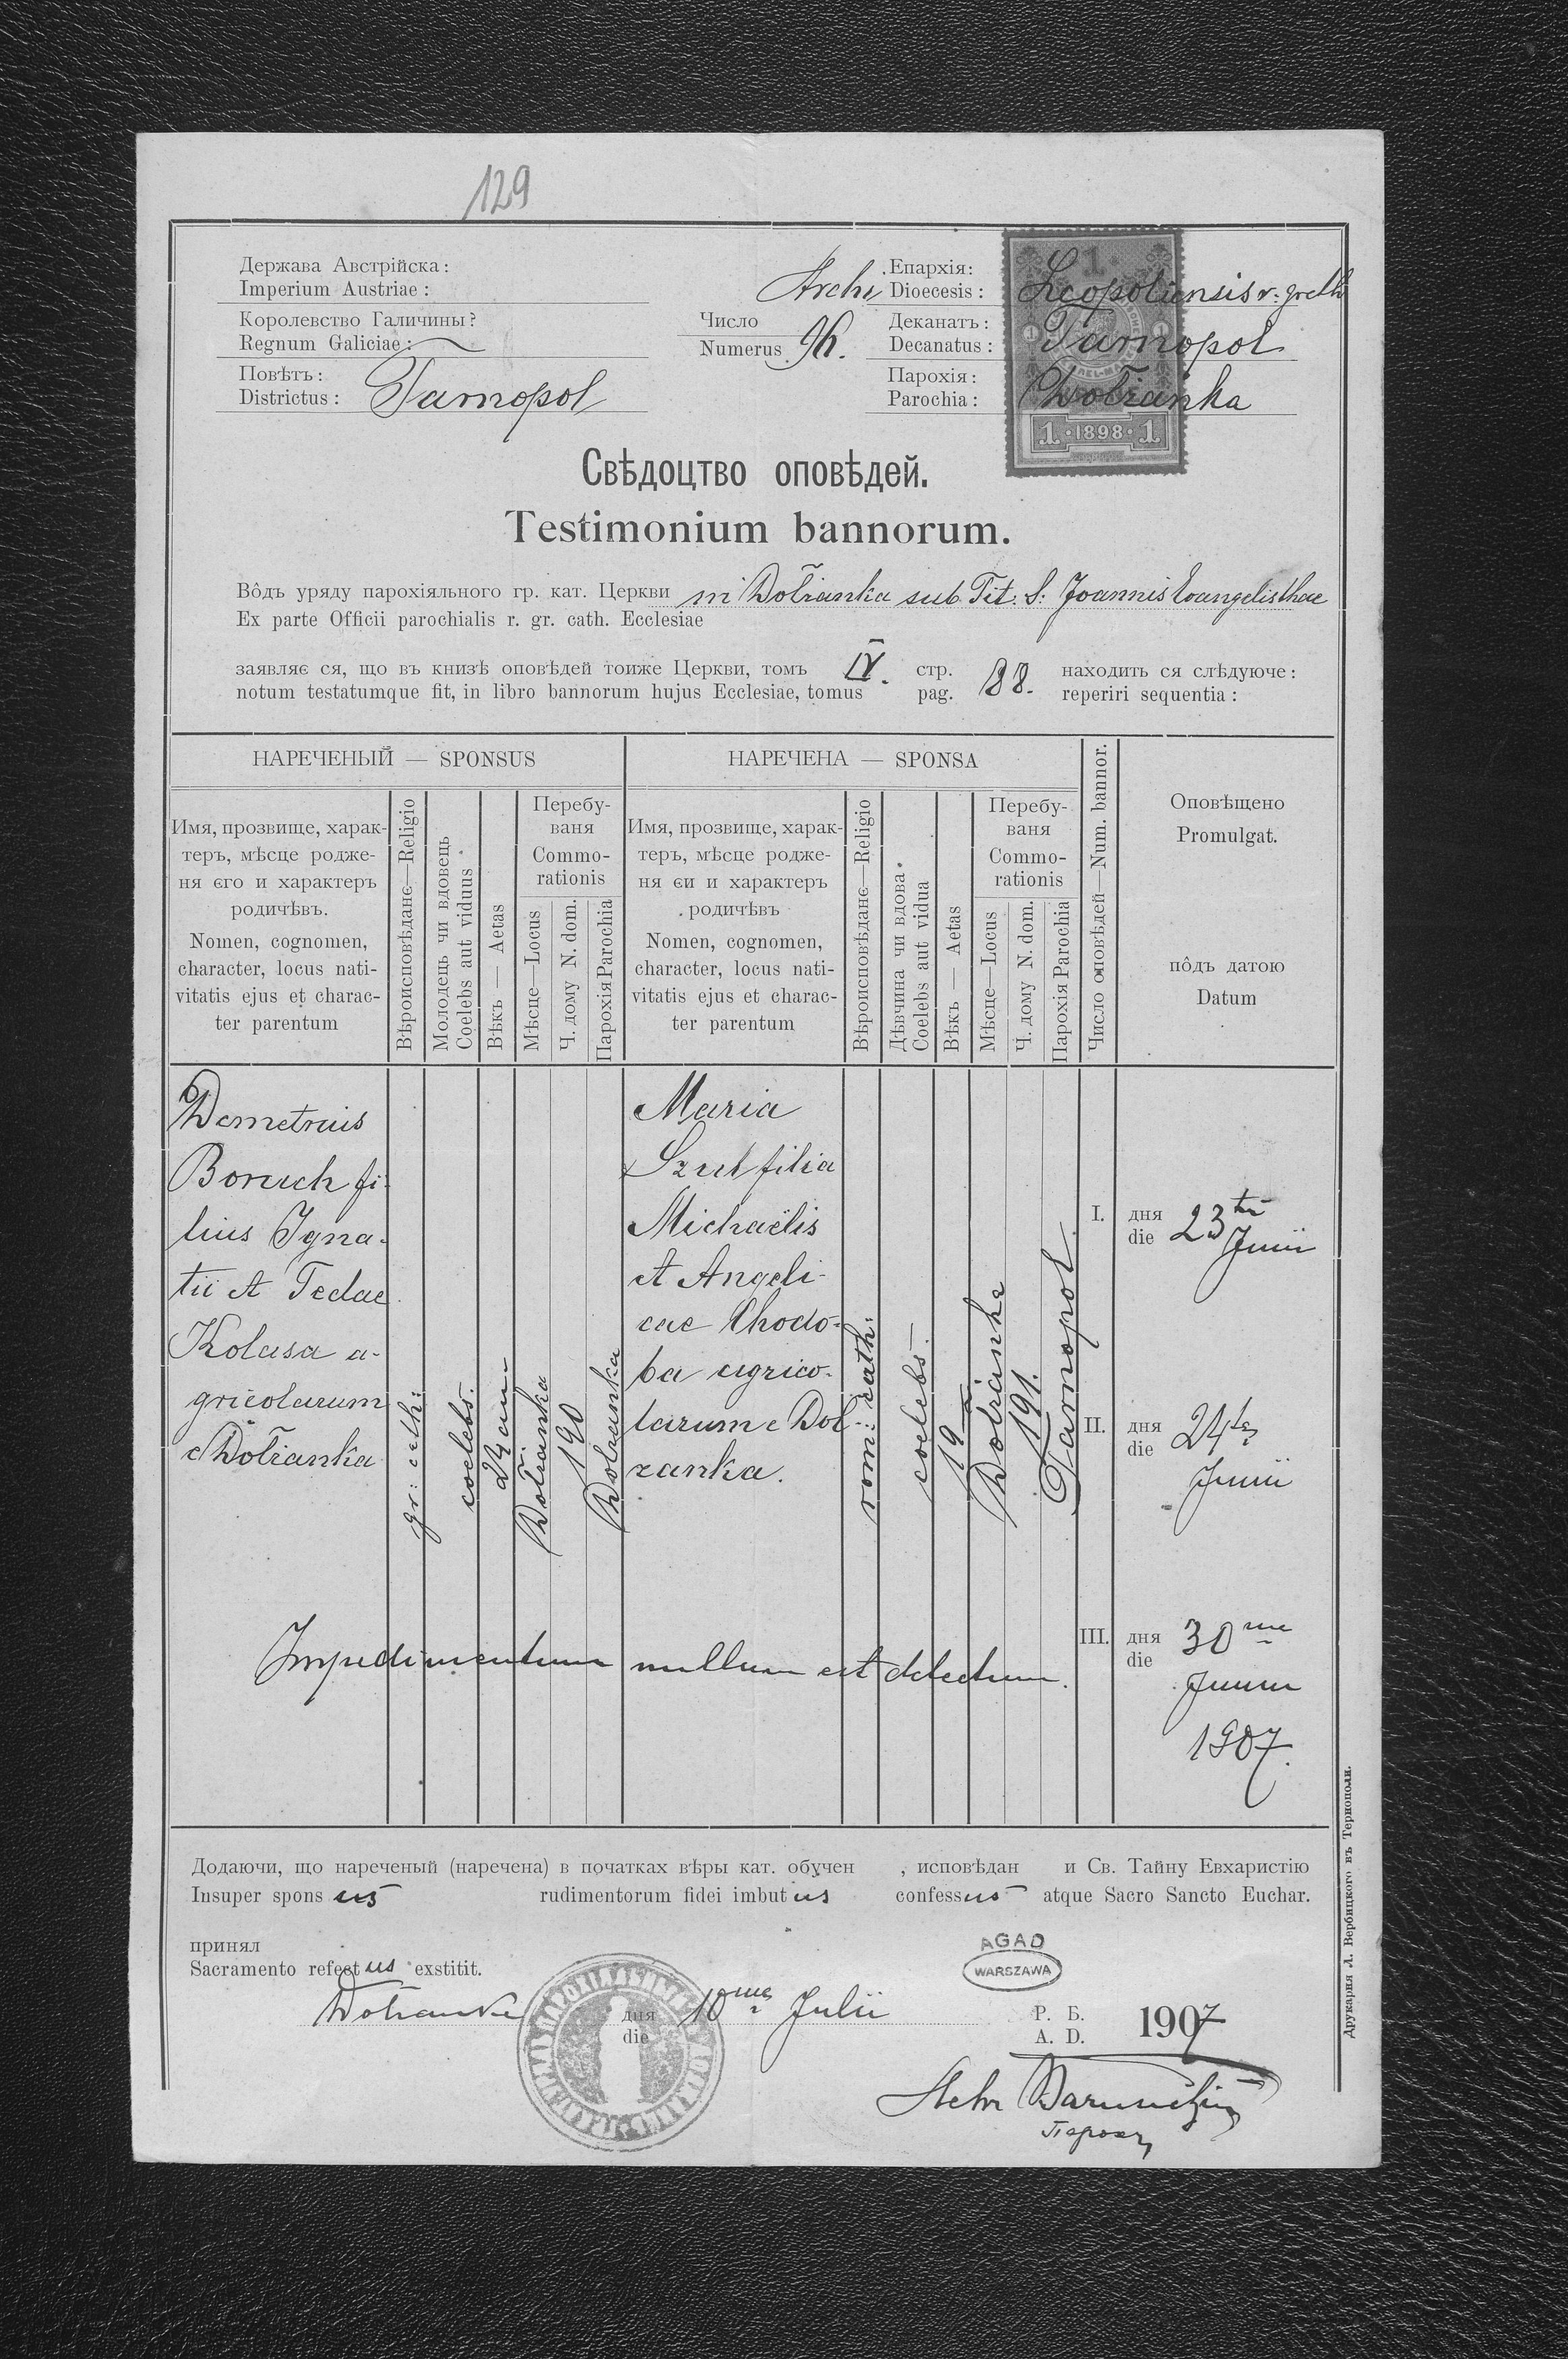 129
Держава Австрійска:
Imperium Austriae:
Королевство Галичины?
Regnum Galiciae:
Повѣтъ:
Districtus: Tarnopol
Число
Numerus 96.
Епархія:
Archi Dioecesis: Leopoliensis r: gr cth
Деканатъ:
Decanatus: Tarnopol
Парохія:
Parochia: Dołżanka
1
1 1
1·1898·1
Свѣдоцтво оповѣдей.
Testimonium bannorum.
Вôдъ уряду парохіяльного гр. кат. Церкви in Dołżanka sub Tit. S: Joannis Evangelisthae
Ex parte Officii parochialis r. gr. cath. Ecclesiae
заявляє ся, що въ книзѣ оповѣдей тоиже Церкви, томъ IV. стр. 88. находить ся слѣдуюче:
notum testatumque fit, in libro bannorum hujus Ecclesiae, tomus pag. reperiri sequentia:
НАРЕЧЕНЫЙ — SPONSUS
НАРЕЧЕНА — SPONSA
Имя, прозвище, харак-
теръ, мѣсце родже-
ня єго и характеръ
родичѣвъ.
Nomen, cognomen,
character, locus nati-
vitatis ejus et charac-
ter parentum
Вѣроисповѣданє—Religio
Молодець чи вдовець
Coelebs aut viduus
Вѣкъ — Aetas
Перебу-
ваня
Commo-
rationis
Мѣсце—Locus
Ч. дому N. dom.
Парохія Parochia
Имя, прозвище, харак-
теръ, мѣсце родже-
ня єи и характеръ
родичѣвъ
Nomen, cognomen,
character, locus nati-
vitatis ejus et charac-
ter parentum
Вѣроисповѣданє—Religio
Дѣвчина чи вдова
Coelebs aut vidua
Вѣкъ — Aetas
Перебу-
ваня
Commo-
rationis
Мѣсце—Locus
Ч. дому N. dom.
Парохія Parochia
Число оповѣдей—Num. bannor.
Оповѣщено
Promulgat.
пôдъ датою
Datum
Demetrius
Boruch fi-
lius Igna-
tii et Teclae
Kolasa a-
gricolarum
e Dołżanka
gr: cth:
coelebs.
24 an
Dołżanka
190
Dołżanka
Maria
Szul filia
Michaëlis
et Angeli-
cae Chodo-
ba agrico-
larum e Doł-
żanka.
rom: cath:
coelebs.
19
Dołżanka
191.
Tarnopol
I. дня
die 23tia Junii
II. дня
die 24ta
Junii
III. дня
die 30ma
Junii
1907.
Impedimentum nullum est detectum.
Додаючи, що нареченый (наречена) в початках вѣры кат. обучен , исповѣдан и Св. Тайну Евхаристію
Insuper spons us rudimentorum fidei imbut us confess us atque Sacro Sancto Euchar.
принял
Sacramento refect us exstitit.
AGAD
WARSZAWA
Dołżanka дня
die 10ma Julii Р. Б.
A. D. 1907
Парох
Друкарня Л. Вербицкого въ Тернополи.